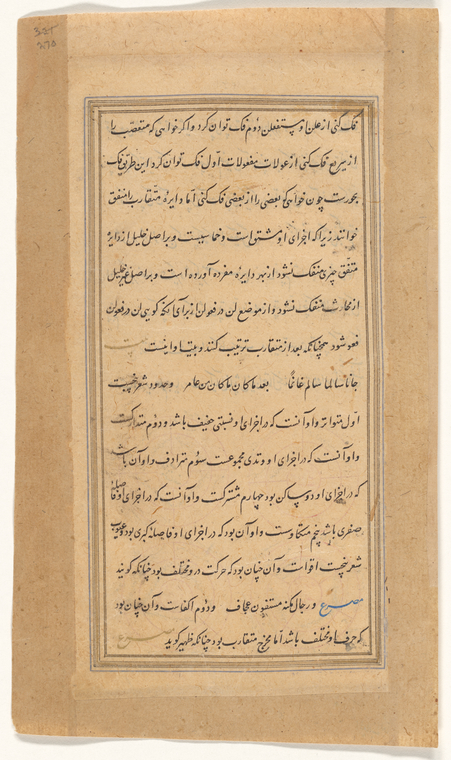 فک کنی از علن او مستفعلن دوم فک توان کرد و اگر خواهی که مقتضب را
از سریع فک کنی از عولات مفعولات اول فک توان کرد این طریق فک
بحورست چون خواهی که بعضی را از بعضی فک کنی اما دایرهٔ متقارب را متفق
خوانند زیرا که اجزای او متفق است و خماسیست و بر اصل خلیل از دایرهٔ
متفق چیزی منفک نشود از بهر دایرهٔ مفرده آورده است و بر اصل غیر خلیل
از محارث منفک نشود و از موضع لن در فعولن از برای آنکه کویی لن در فعولن
فعو شود همچنانکه بعد از متقارب ترتیب کنند و بیتها و اینست بیت
جانا سالما سالم غانما بعد ماکان ماکان من عامر و حدود شعر پنجست
اول متواتر و او آنست که در اجزای او سببی خفیف باشد و دوم متدارکست
و او آنست که در اجزای او وتدی مجموعست سوم مترادف و او آن باشد
که در اجزای او دو ساکن بود چهارم مشترکست و او آنست که در اجزای او فاصلهٔ
صغری باشد پنجم متکاوست و او آن بود که در اجزای او فاصلهٔ کبری بود و عیوب
شعر پنجست اقوات و آن چنان بود که حرکت در و مختلف بود چنانکه کویند
مصرع و رجال مکه مسنتون عجاف و دوم اکفاست و آن چنان بود
که حرف او مختلف باشد اما مخرج متقارب بود چنانکه ظهیر کوید مصرع